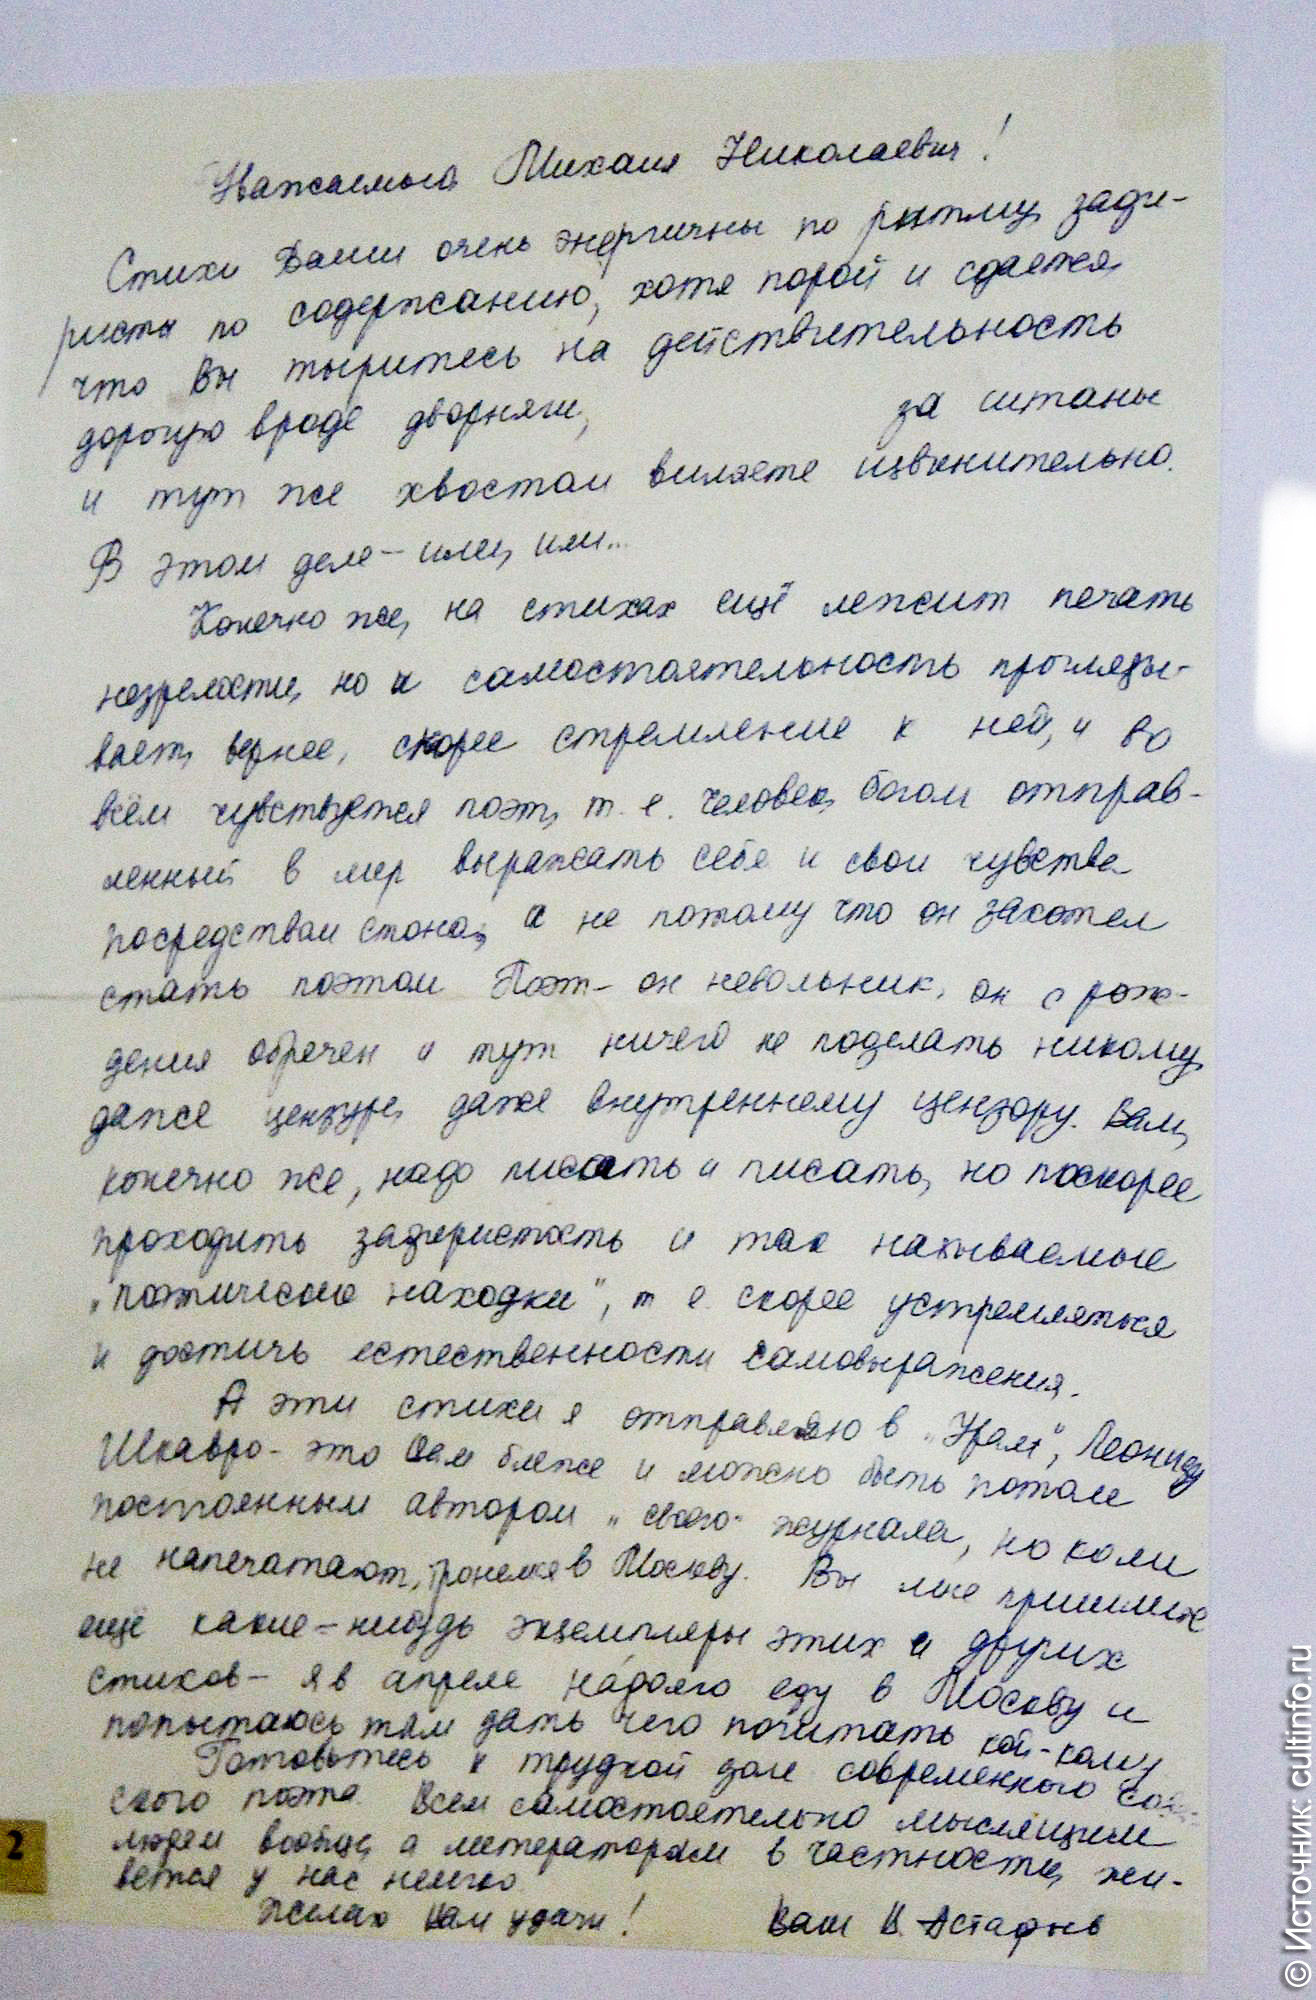 Уважаемый Михаил Николаевич!
Стихи Ваши очень энергичны по ритму, зади-
ристы по содержанию, хотя порой и сдается,
что Вы тыритесь на действительность
дорогую вроде дворняги, за штаны
и тут же хвостом виляете извинительно.
В этом деле – или, или...
Конечно же, на стихах ещё лежит печать
незрелости, но и самостоятельность прогляды-
вает, вернее, скорее стремление к ней, и во
всём чувствуется поэт, т. е. человек, богом отправ-
ленный в мир выражать себя и свои чувства
посредством стона, а не потому что он захотел
стать поэтом Поэт – он невольник, он с рож-
дения обречен и тут ничего не поделать никому,
даже цензуре, даже внутреннему цензору. Вам,
конечно же, надо писать и писать, но поскорее
проходить задиристость и так называемые
„поэтические находки", т е. скорее устремляться
и достичь естественности самовыражения.
А эти стихи я отправляю в „Урал", Леониду
Шкавро – это Вам ближе и можно быть потом
постоянным автором „своего" журнала, но коли
не напечатают, тронемся в Москву. Вы мне пришлите
ещё какие-нибудь экземпляры этих и других
стихов – я в апреле надолго еду в Москву и
попытаюсь там дать чего почитать кой-кому
Готовьтесь к трудной доле современного совет-
ского поэта. Всем самостоятельно мыслящим
людям вообще, а литераторам в частности, жи-
вется у нас нелегко
Желаю Вам удачи! Ваш В. Астафьев
2
© Источник: cultinfo.ru